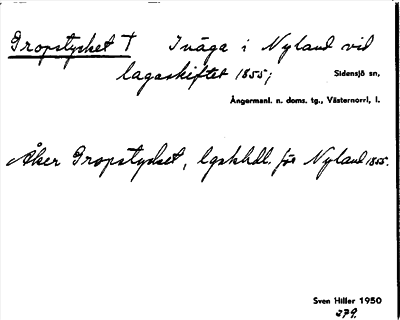 Gropstycket † Inäga i Nyland vid
lagaskiftet 1855;
Sidensjö sn,
Ångermanl. n. doms. tg., Västernorrl, l.
Åker Gropstycket, lgskhdl. för Nyland 1855.
Sven Hiller 1950
279.